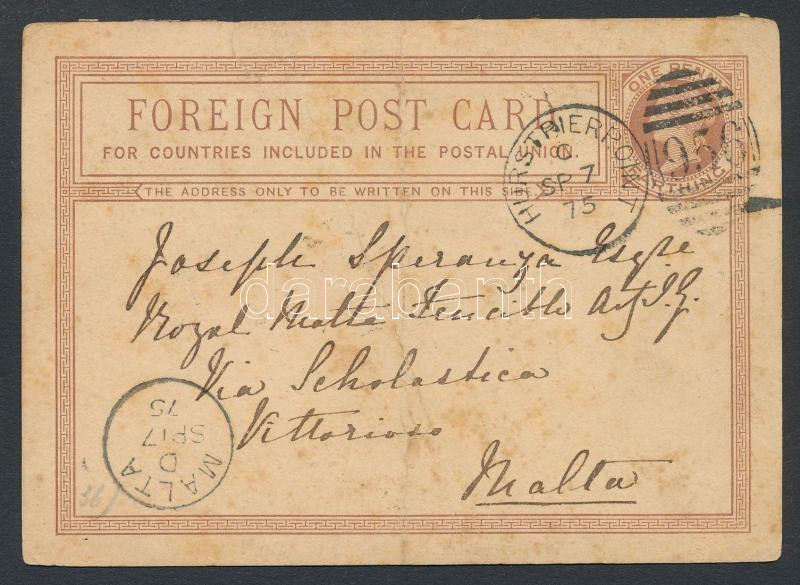 FOREIGN POST CARD
FOR COUNTRIES INCLUDED IN THE POSTAL UNION
THE ADDRESS ONLY TO BE WRITTEN ON THIS SIDE
ONE PENNY
FARTHING
HURSTPIERPOINT
C
SP 7
75
Joseph Speranza Esqre
Royal Malta Fencible
Via Scholastica
Vittorioso
Malta
MALTA
D
SP 17
75
darabanth